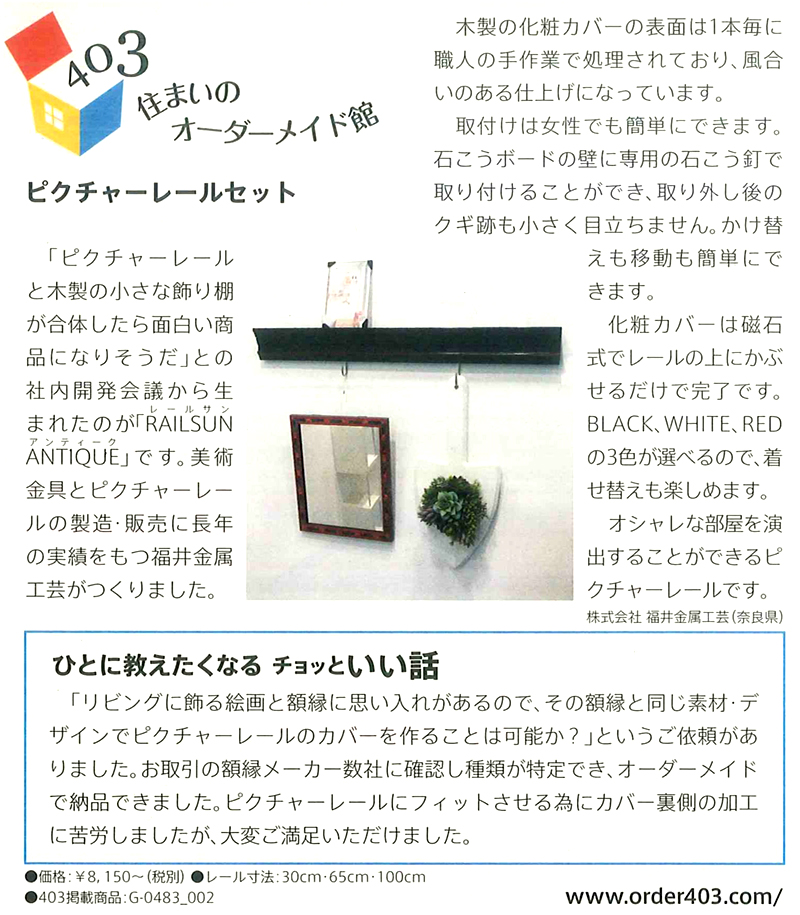 403
住まいの
オーダーメイド館
ピクチャーレールセット
「ピクチャーレール
と木製の小さな飾り棚
が合体したら面白い商
品になりそうだ」との
社内開発会議から生
レールサン
まれたのが「RAILSUN
アンティーク
ANTIQUE」です。美術
金具とピクチャーレー
ルの製造·販売に長年
の実績をもつ福井金属
工芸がつくりました。
木製の化粧カバーの表面は1本毎に
職人の手作業で処理されており、風合
いのある仕上げになっています。
取付けは女性でも簡単にできます。
石こうボードの壁に専用の石こう釘で
取り付けることができ、取り外し後の
クギ跡も小さく目立ちません。かけ替
えも移動も簡単にで
きます。
化粧カバーは磁石
式でレールの上にかぶ
せるだけで完了です。
BLACK、WHITE、RED
の3色が選べるので、着
せ替えも楽しめます。
オシャレな部屋を演
出することができるピ
クチャーレールです。
株式会社 福井金属工芸(奈良県)
ひとに教えたくなる チョッといい話
「リビングに飾る絵画と額縁に思い入れがあるので、その額縁と同じ素材·デ
ザインでピクチャーレールのカバーを作ることは可能か?」というご依頼があ
りました。お取引の額縁メーカー数社に確認し種類が特定でき、オーダーメイド
で納品できました。ピクチャーレールにフィットさせる為にカバー裏側の加工
に苦労しましたが、大変ご満足いただけました。
●価格:¥8,150〜(税別) ●レール寸法:30cm·65cm·100cm
●403掲載商品:G-0483_002
www.order403.com/